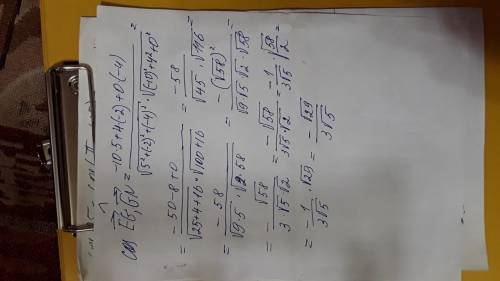 cos EG, GN = (-10·5+4(-2)+0(-4)) / (√(5²+(-2)²+(-4)²) · √((-10)²+4²+0²)) =
= (-50-8+0) / (√(25+4+16) · √(100+16)) = -58 / (√45 · √116) =
= -58 / (√(9·5) · √(2·58)) = -(√58)² / (√9 √5 √2 · √58) =
= -√58 / (3√5√2) = -√58 / (3√5·√2) = -1/(3√5) · √(58/2) =
= -1/(3√5) · √29 = -√29 / (3√5)